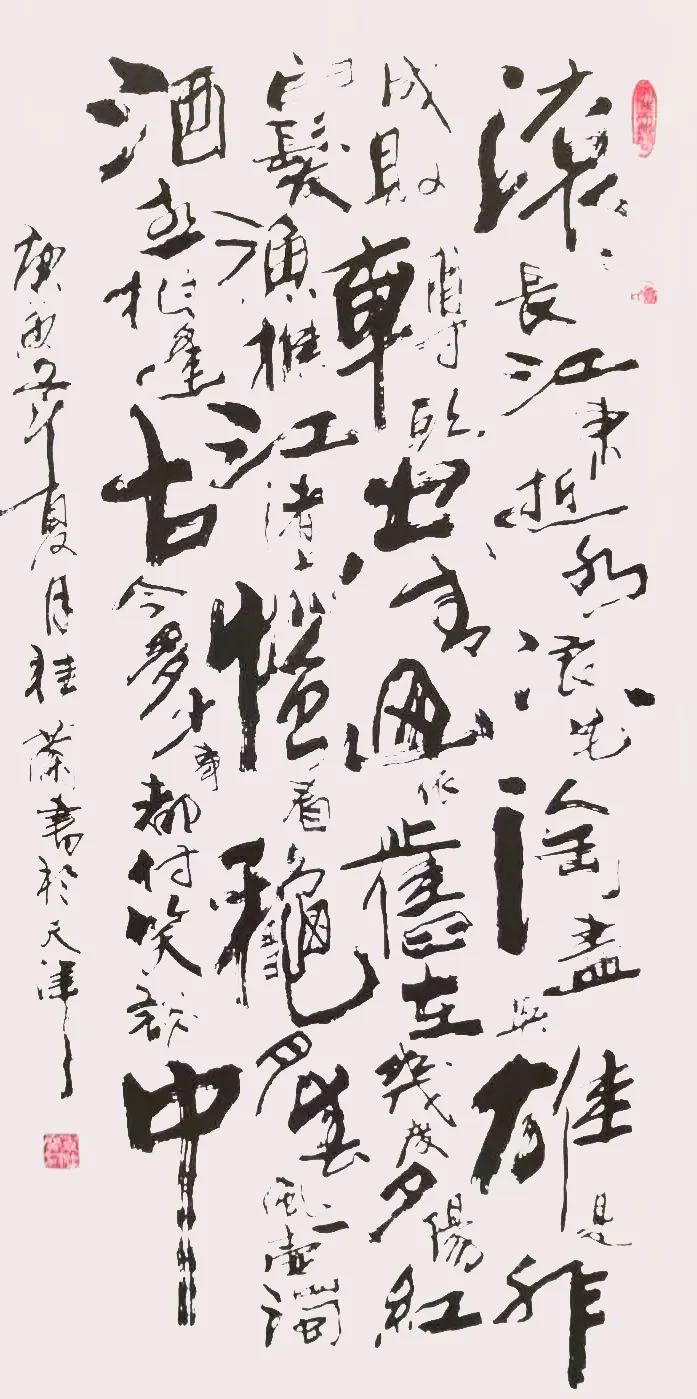 滾滾長江東逝水浪花淘盡英雄是非
成敗轉頭空青山依舊在幾度夕陽紅
白髮漁樵江渚上慣看龝月春風一壺濁
酒喜相逢古今多少事都付笑談中
庚寅之年夏月桂蘭書於天津